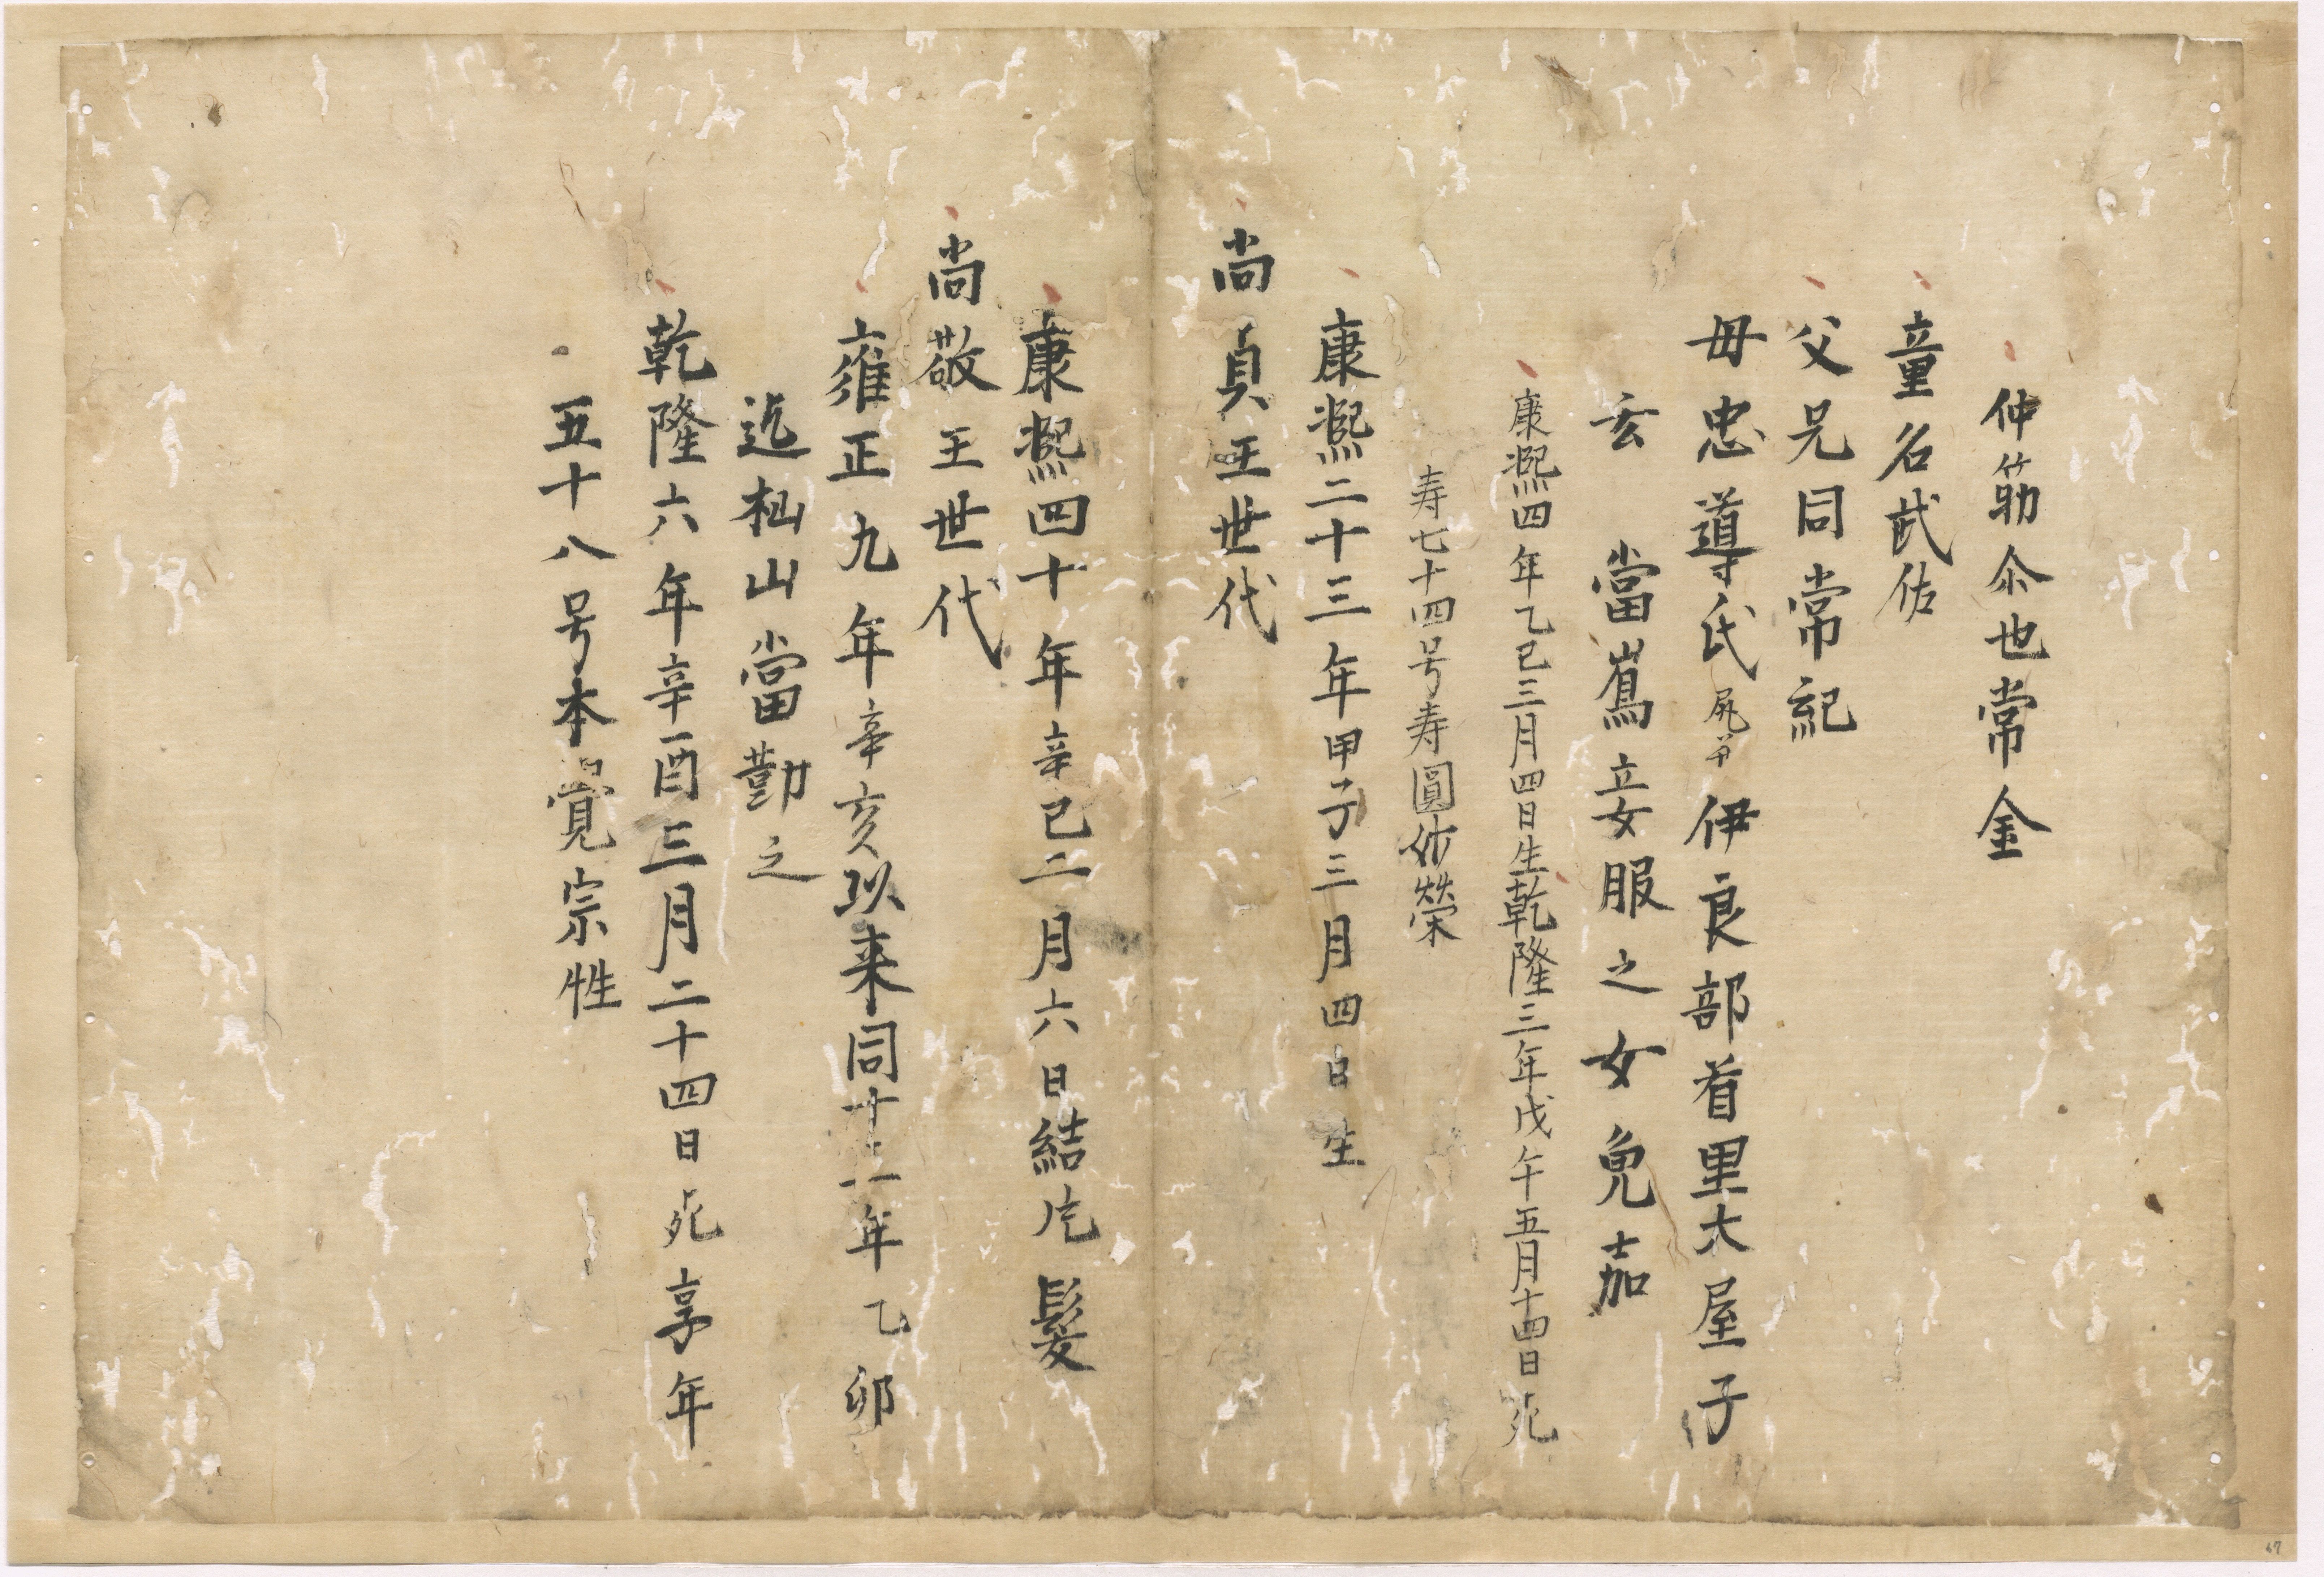 仲筋仁也常金
童名武佐
父兄同常紀
母忠導氏尻並伊良部首里大屋子
玄當嶌立妾服之女免嘉
康熙四年乙巳三月四日生乾隆三年戊午五月十四日死
寿七十四号寿圓妙榮
康熙二十三年甲子三月四日生
尚貞王世代
康熙四十年辛巳二月六日結片髮
尚敬王世代
雍正九年辛亥以来同十三年乙卯
迄杣山當勤之
乾隆六年辛酉三月二十四日死享年
五十八号本覚宗性
67